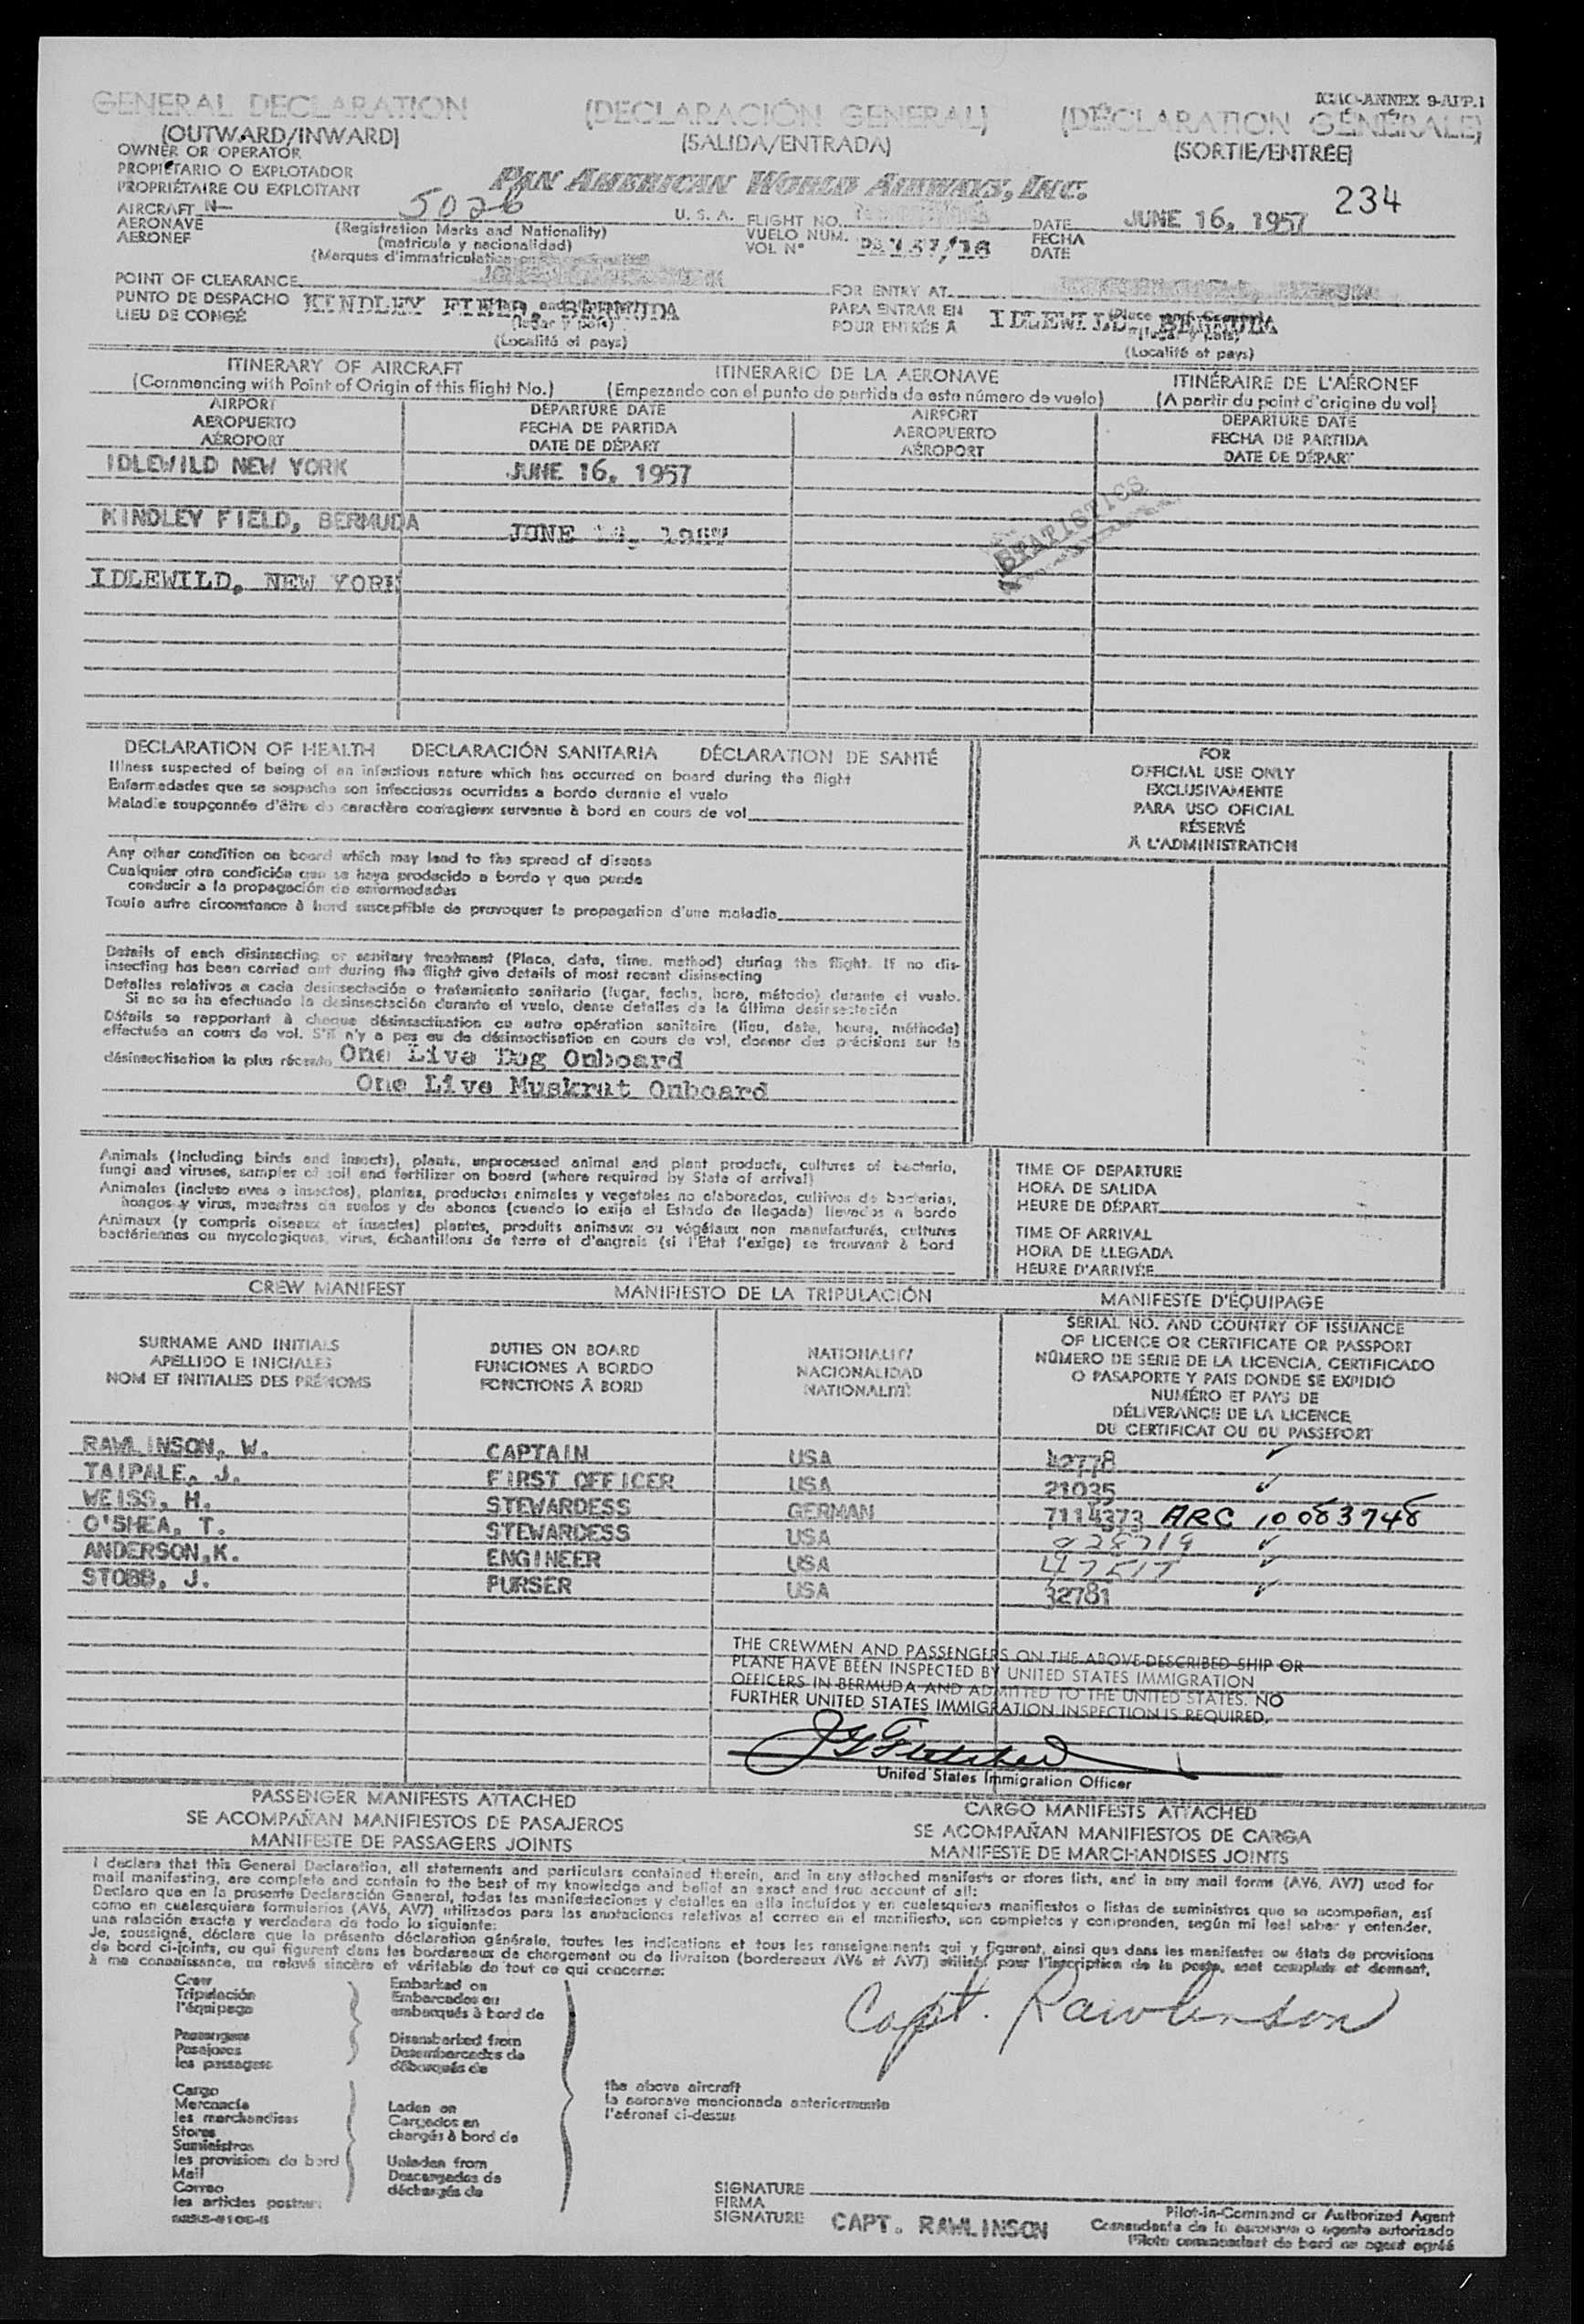 ICAO-ANNEX 9-APP.1
GENERAL DECLARATION (DECLARACIÓN GENERAL) (DÉCLARATION GÉNÉRALE)
(OUTWARD/INWARD) (SALIDA/ENTRADA) (SORTIE/ENTRÉE)
OWNER OR OPERATOR
PROPIETARIO O EXPLOTADOR
PROPRIÉTAIRE OU EXPLOITANT
PAN AMERICAN WORLD AIRWAYS, INC.
234
AIRCRAFT N- 5026 U. S. A. FLIGHT NO. DATE JUNE 16, 1957
AERONAVE (Registration Marks and Nationality) VUELO NUM. FECHA
AERONEF (matricula y nacionalidad) VOL N° PA 157/16 DATE
(Marques d'immatriculation
POINT OF CLEARANCE FOR ENTRY AT
PUNTO DE DESPACHO KINDLEY FIELD, BERMUDA PARA ENTRAR EN
LIEU DE CONGÉ (lugar y pais) POUR ENTRÉE À IDLEWILD BERMUDA
(Localité et pays) (Localité et pays)
ITINERARY OF AIRCRAFT ITINERARIO DE LA AERONAVE ITINÉRAIRE DE L'AÉRONEF
(Commencing with Point of Origin of this flight No.) (Empezando con el punto de partida de este número de vuelo) (A partir du point d'origine du vol)
AIRPORT DEPARTURE DATE AIRPORT DEPARTURE DATE
AEROPUERTO FECHA DE PARTIDA AEROPUERTO FECHA DE PARTIDA
AÉROPORT DATE DE DÉPART AÉROPORT DATE DE DÉPART
IDLEWILD NEW YORK JUNE 16, 1957
STATISTICS
KINDLEY FIELD, BERMUDA JUNE 1957
IDLEWILD, NEW YORK
DECLARATION OF HEALTH DECLARACIÓN SANITARIA DÉCLARATION DE SANTÉ
Illness suspected of being of an infectious nature which has occurred on board during the flight
Enfermedades que se sospecha son infecciosas ocurridas a bordo durante el vuelo
Maladie soupçonnée d'être de caractère contagieux survenue à bord en cours de vol
FOR
OFFICIAL USE ONLY
EXCLUSIVAMENTE
PARA USO OFICIAL
RÉSERVÉ
À L'ADMINISTRATION
Any other condition on board which may lead to the spread of disease
Cualquier otra condición que se haya producido a bordo y que pueda
conducir a la propagación de enfermedades
Toute autre circonstance à bord susceptible de provoquer la propagation d'une maladie
Details of each disinsecting or sanitary treatment (Place, date, time, method) during the flight. If no dis-
insecting has been carried out during the flight give details of most recent disinsecting
Detalles relativos a cada desinsectación o tratamiento sanitario (lugar, fecha, hora, método) durante el vuelo.
Si no se ha efectuado la desinsectación durante el vuelo, dense detalles de la última desinsectación
Détails se rapportant à chaque désinsectisation ou autre opération sanitaire (lieu, date, heure, méthode)
effectuée en cours de vol. S'il n'y a pas eu de désinsectisation en cours de vol, donner des précisions sur la
désinsectisation la plus récente One Live Dog Onboard
One Live Muskrat Onboard
Animals (including birds and insects), plants, unprocessed animal and plant products, cultures of bacteria,
fungi and viruses, samples of soil and fertilizer on board (where required by State of arrival)
Animales (incluso aves e insectos), plantas, productos animales y vegetales no elaborados, cultivos de bacterias,
hongos y virus, muestras de suelos y de abonos (cuando lo exija el Estado de llegada) llevados a bordo
Animaux (y compris oiseaux et insectes) plantes, produits animaux ou végétaux non manufacturés, cultures
bactériennes ou mycologiques, virus, échantillons de terre et d'engrais (si l'Etat l'exige) se trouvant à bord
TIME OF DEPARTURE
HORA DE SALIDA
HEURE DE DÉPART
TIME OF ARRIVAL
HORA DE LLEGADA
HEURE D'ARRIVÉE
CREW MANIFEST MANIFIESTO DE LA TRIPULACIÓN MANIFESTE D'ÉQUIPAGE
SURNAME AND INITIALS
APELLIDO E INICIALES
NOM ET INITIALES DES PRÉNOMS
DUTIES ON BOARD
FUNCIONES A BORDO
FONCTIONS À BORD
NATIONALITY
NACIONALIDAD
NATIONALITÉ
SERIAL NO. AND COUNTRY OF ISSUANCE
OF LICENCE OR CERTIFICATE OR PASSPORT
NÚMERO DE SERIE DE LA LICENCIA, CERTIFICADO
O PASAPORTE Y PAIS DONDE SE EXPIDIÓ
NUMÉRO ET PAYS DE
DÉLIVERANCE DE LA LICENCE
DU CERTIFICAT OU DU PASSEPORT
RAWLINSON, W. CAPTAIN USA 42778 ✓
TAIPALE, J. FIRST OFFICER USA 21035 ✓
WEISS, H. STEWARDESS GERMAN 7114373 ARC 10083748
O'SHEA, T. STEWARDESS USA 928719 ✓
ANDERSON,K. ENGINEER USA 47517 ✓
STOBB, J. PURSER USA 32781 ✓
THE CREWMEN AND PASSENGERS ON THE ABOVE-DESCRIBED SHIP OR
PLANE HAVE BEEN INSPECTED BY UNITED STATES IMMIGRATION
OFFICERS IN BERMUDA AND ADMITTED TO THE UNITED STATES. NO
FURTHER UNITED STATES IMMIGRATION INSPECTION IS REQUIRED.
United States Immigration Officer
PASSENGER MANIFESTS ATTACHED
SE ACOMPAÑAN MANIFIESTOS DE PASAJEROS
MANIFESTE DE PASSAGERS JOINTS
CARGO MANIFESTS ATTACHED
SE ACOMPAÑAN MANIFIESTOS DE CARGA
MANIFESTE DE MARCHANDISES JOINTS
I declare that this General Declaration, all statements and particulars contained therein, and in any attached manifests or stores lists, and in any mail forms (AV6, AV7) used for
mail manifesting, are complete and contain to the best of my knowledge and belief an exact and true account of all:
Declaro que en la presente Declaración General, todas las manifestaciones y detalles en ella incluídos y en cualesquiera manifiestos o listas de suministros que se acompañan, así
como en cualesquiera formularios (AV6, AV7) utilizados para las anotaciones relativas al correo en el manifiesto, son completos y comprenden, según mi leal saber y entender,
una relación exacta y verdadera de todo lo siguiente:
Je, soussigné, déclare que la présente déclaration générale, toutes les indications et tous les renseignements qui y figurent, ainsi que dans les manifestes ou états de provisions
de bord ci-joints, ou qui figurent dans les bordereaux de chargement ou de livraison (bordereaux AV6 et AV7) utilisés pour l'inscription de la poste, sont complets et donnent,
à ma connaissance, un relevé sincère et véritable de tout ce qui concerne:
Crew
Tripulación
l'équipage
Passengers
Pasajeros
les passagers
Embarked on
Embarcados en
embarqués à bord de
Disembarked from
Desembarcados de
débarqués de
Capt. Rawlinson
Cargo
Mercancía
les marchandises
Stores
Suministros
les provisions de bord
Mail
Correo
les articles postaux
Laden on
Cargados en
chargés à bord de
Unladen from
Descargados de
déchargés de
the above aircraft
la aeronave mencionada anteriormente
l'aéronef ci-dessus
SIGNATURE
FIRMA
SIGNATURE CAPT. RAWLINSON
Pilot-in-Command or Authorized Agent
Comandante de la aeronave o agente autorizado
Pilote commandant de bord ou agent agréé